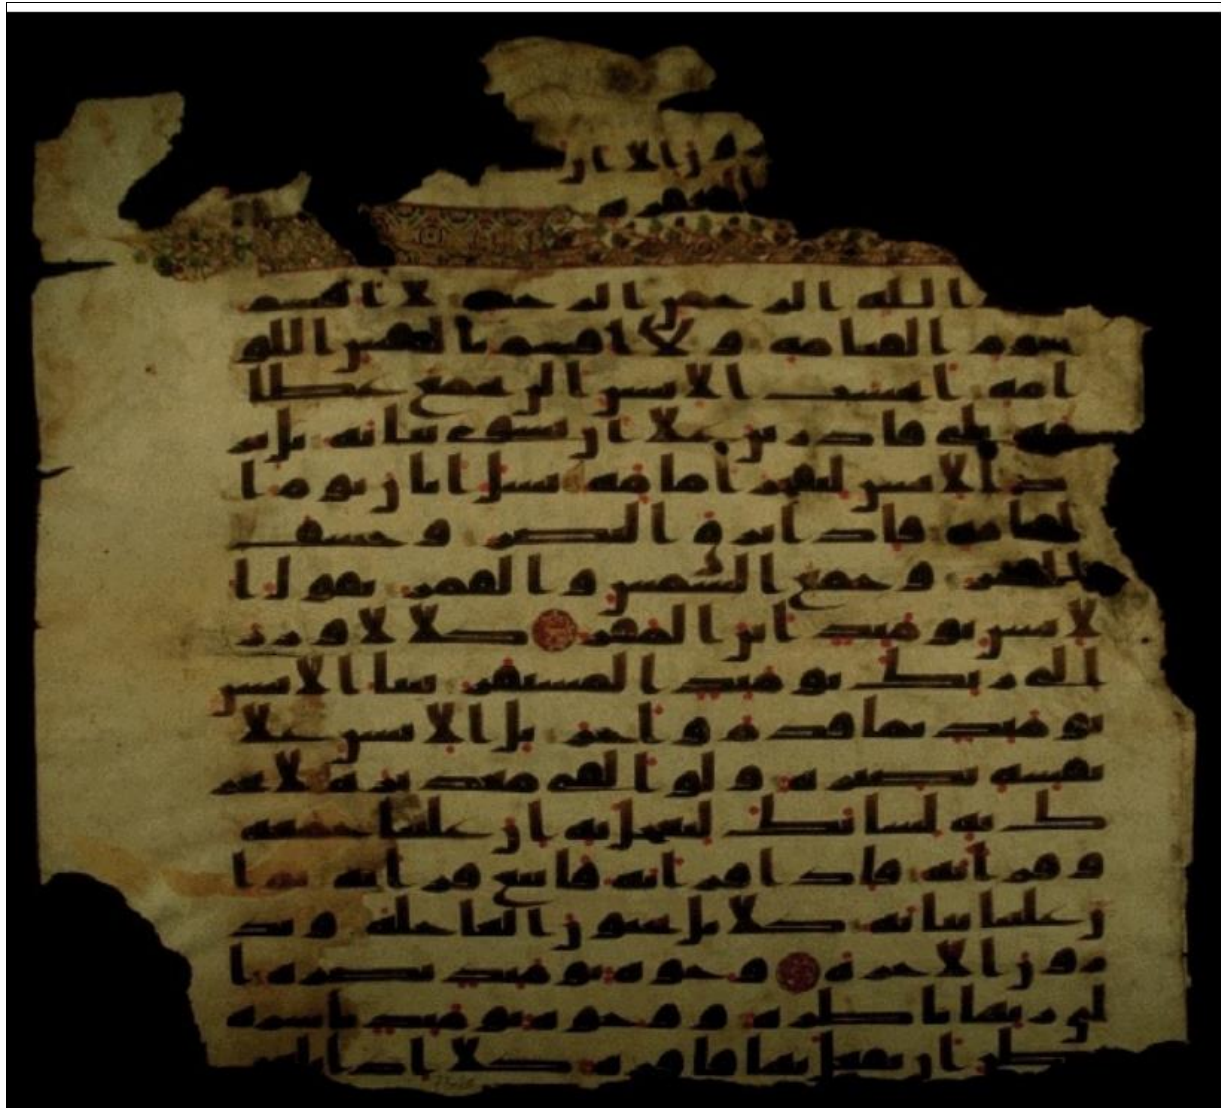 ون الا ان
الله الرحمن الرحيم لا اقسم
بيوم القيامه ولا اقسم بالنفس اللو
امه ايحسب الانسن الن نجمع عظا
مه بلى قادرين علا ان نسوي بنانه بل ير
يد الانسن ليفجر امامه يسل ايان يوم ا
لقيامه فاذا برق البصر وخسف
القمر وجمع الشمس والقمر يقول ا
لانسن يومئذ اين المفر كلا لا وزر
الى ربك يومئذ المستقر ينبا الانسن
يومئذ بما قدم واخر بل الانسن علا
نفسه بصيره ولو القى معذيره لا تحر
ك به لسانك لتعجل به ان علينا جمعه
وقرانه فاذا قرانه فاتبع قرانه ثم ا
ن علينا بيانه كلا بل تحبون العاجله وتذ
رون الاخره وجوه يومئذ ناضره ا
لى ربها ناظره ووجوه يومئذ باسره
تظن ان يفعل بها فاقره كلا اذا